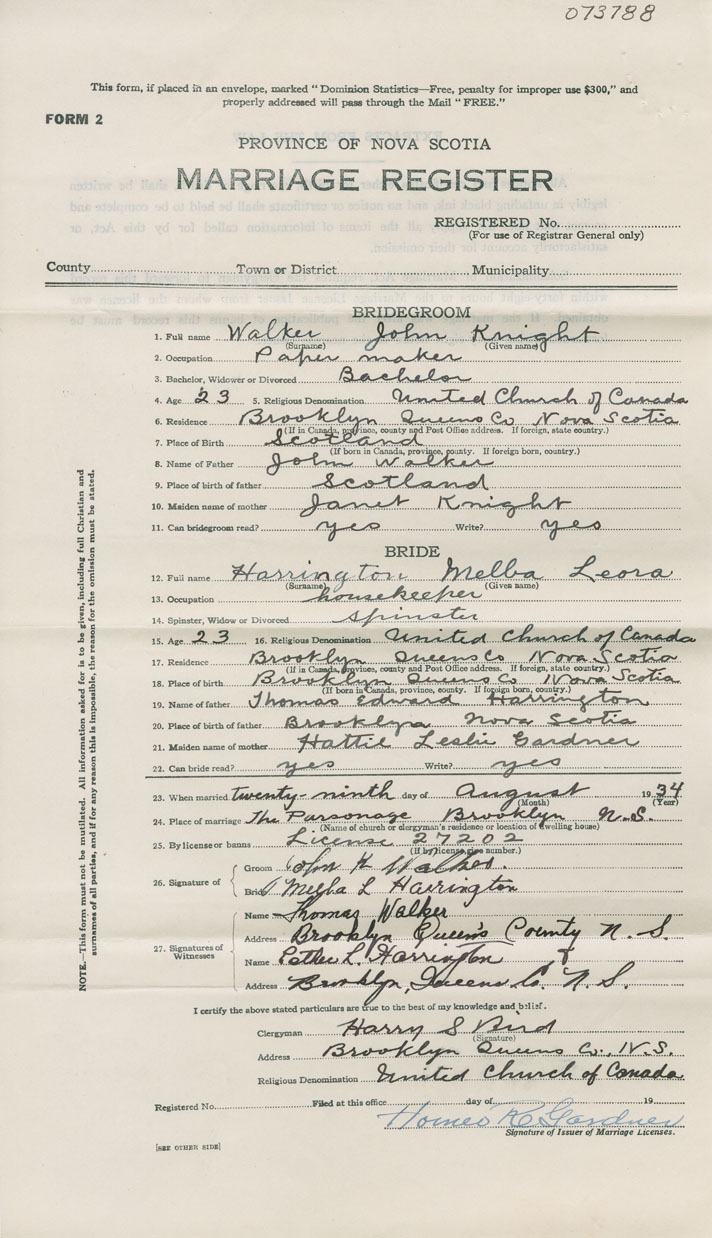 073788
This form, if placed in an envelope, marked "Dominion Statistics—Free, penalty for improper use $300," and
properly addressed will pass through the Mail "FREE."
FORM 2
PROVINCE OF NOVA SCOTIA
MARRIAGE REGISTER
REGISTERED No.
(For use of Registrar General only)
County Town or District Municipality
BRIDEGROOM
1. Full name Walker John Knight
(Surname) (Given name)
2. Occupation Paper maker
3. Bachelor, Widower or Divorced Bachelor
4. Age 23 5. Religious Denomination United Church of Canada
6. Residence Brooklyn Queens Co Nova Scotia
(If in Canada, province, county and Post Office address. If foreign, state country.)
7. Place of Birth Scotland
(If born in Canada, province, county. If foreign born, country.)
8. Name of Father John Walker
9. Place of birth of father Scotland
10. Maiden name of mother Janet Knight
11. Can bridegroom read? yes Write? yes
BRIDE
12. Full name Harrington Melba Leora
(Surname) (Given name)
13. Occupation housekeeper
14. Spinster, Widow or Divorced spinster
15. Age 23 16. Religious Denomination United Church of Canada
17. Residence Brooklyn Queens Co Nova Scotia
(If in Canada, province, county and Post Office address. If foreign, state country.)
18. Place of birth Brooklyn Queens Co Nova Scotia
(If born in Canada, province, county. If foreign born, country.)
19. Name of father Thomas Edward Harrington
20. Place of birth of father Brooklyn Nova Scotia
21. Maiden name of mother Hattie Leslie Gardner
22. Can bride read? yes Write? yes
23. When married twenty-ninth day of August 1934
(Month) (Year)
24. Place of marriage The Parsonage Brooklyn N.S.
(Name of church or clergyman's residence or location of dwelling house)
25. By license or banns License 27202
(If by license give number.)
26. Signature of Groom John K Walker.
Bride Melba L Harrington
27. Signatures of Witnesses
Name Thomas Walker
Address Brooklyn Queen's County N. S.
Name L. Harrington
Address Brooklyn, Queens Co. N. S.
I certify the above stated particulars are true to the best of my knowledge and belief.
Clergyman Harry S Bird
(Signature)
Address Brooklyn Queens Co., N.S.
Religious Denomination United Church of Canada
Registered No. Filed at this office day of 19
Homer R Gardner
Signature of Issuer of Marriage Licenses.
[SEE OTHER SIDE]
NOTE.—This form must not be mutilated. All information asked for is to be given, including full Christian and
surnames of all parties, and if for any reason this is impossible, the reason for the omission must be stated.